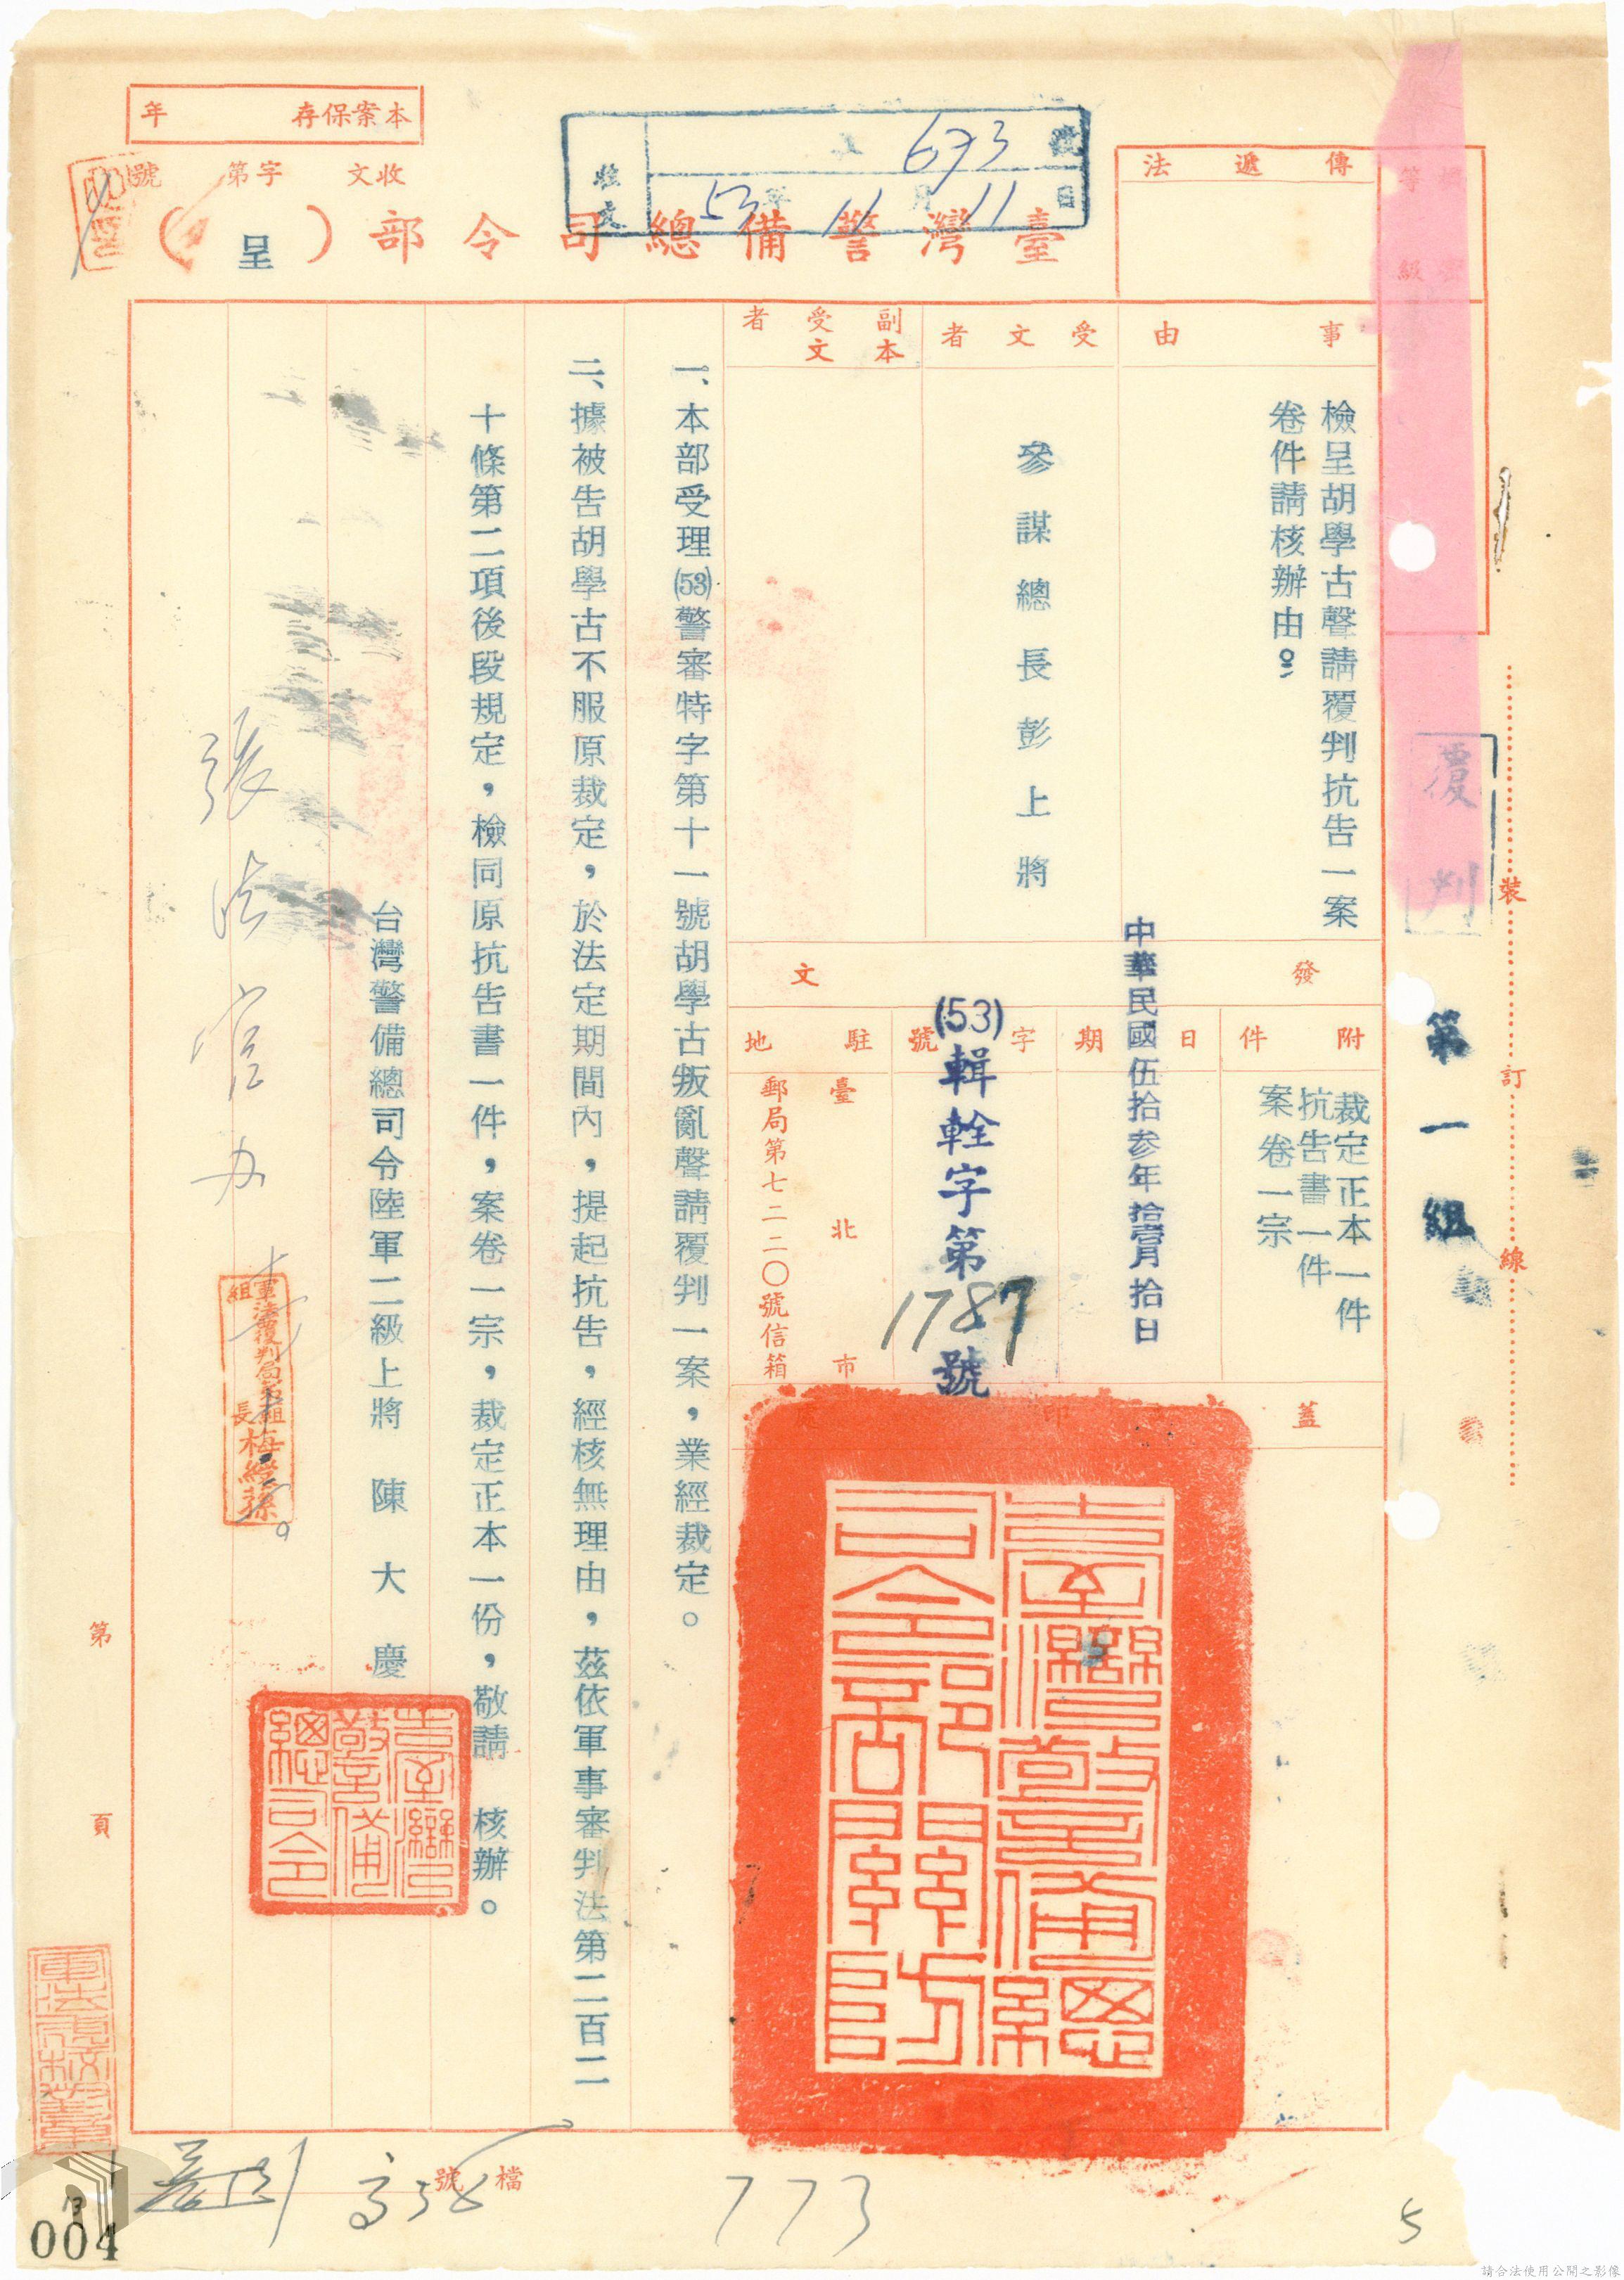 本案保存　　年
收文　字第　號
收文　673 號
53 年 11 月 11 日
臺灣警備總司令部（呈）
傳遞法
等級
事由
檢呈胡學古聲請覆判抗告一案
卷件請核辦由。
受文者
參謀總長彭上將
副本受文者
覆判
第一組
裝訂線
發文
附件
裁定正本一件
抗告書一件
案卷一宗
日期
中華民國伍拾參年拾壹月拾日
字號
(53)輯輇字第1787號
駐地
臺北市
郵局第七二二〇號信箱
蓋印
臺灣警備總司令部關防
一、本部受理(53)警審特字第十一號胡學古叛亂聲請覆判一案，業經裁定。
二、據被告胡學古不服原裁定，於法定期間內，提起抗告，經核無理由，茲依軍事審判法第二百二
十條第二項後段規定，檢同原抗告書一件，案卷一宗，裁定正本一份，敬請　核辦。
台灣警備總司令陸軍二級上將　陳大慶
臺灣警備總司令
張法官办
軍法覆判局第一組組長梅綬蓀
第　頁
檔號
773
5
13
004
請合法使用公開之影像